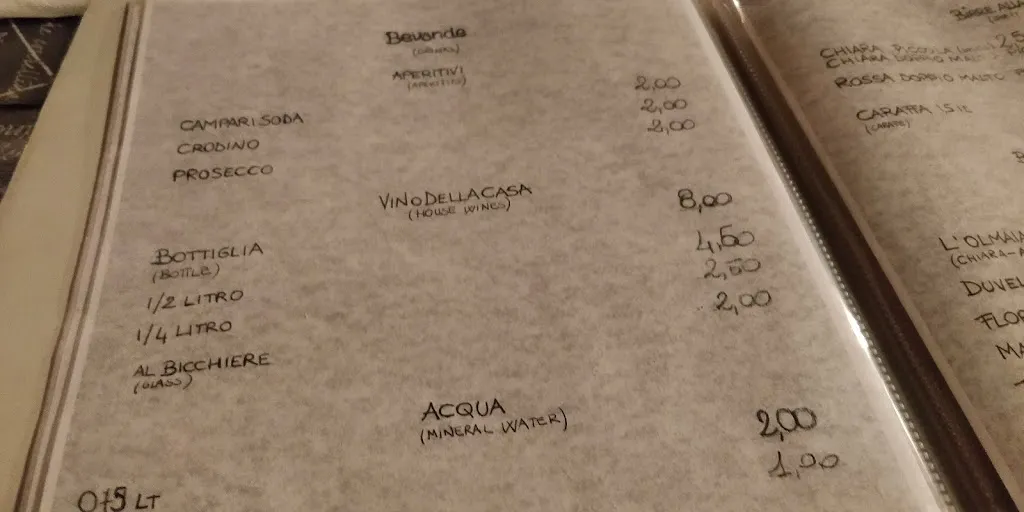 Bevande
(DRINKS)
APERITIVI
(APERITIFS)
CAMPARI SODA 2,00
CRODINO 2,00
PROSECCO 2,00
VINO DELLA CASA
(HOUSE WINES)
BOTTIGLIA 8,00
(BOTTLE)
1/2 LITRO 4,50
1/4 LITRO 2,50
AL BICCHIERE 2,00
(GLASS)
ACQUA
(MINERAL WATER)
2,00
1,00
LT
BIRRE ALLA
CHIARA PICCOLA
CHIARA DOPPIO MALTO
ROSSA DOPPIO MALTO
CARAFFA 1,5 lt
(CARAFE)
L'OLMAIA
(CHIARA-
DUVEL
FLOR
MA